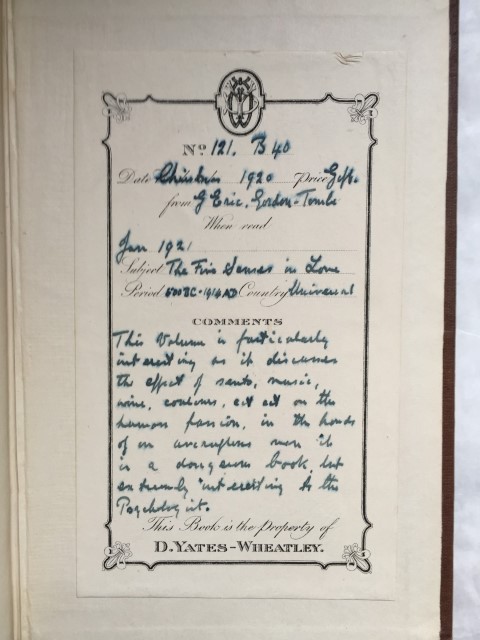 Nº 121. B 40
Date Christmas 1920 Price Gift.
from G Eric. Gordon-Tombe
When read
Jan 1921
Subject The Five Senses in Love
Period 500 BC - 1914 AD Country Universal
COMMENTS
This Volume is particularly
interesting as it discusses
the effect of scents, music,
wine, colours, ect ect on the
human passion, in the hands
of an unscrupulous man it
is a dangerous book, but
extremely interesting to the
Psychologist.
This Book is the Property of
D. YATES-WHEATLEY.